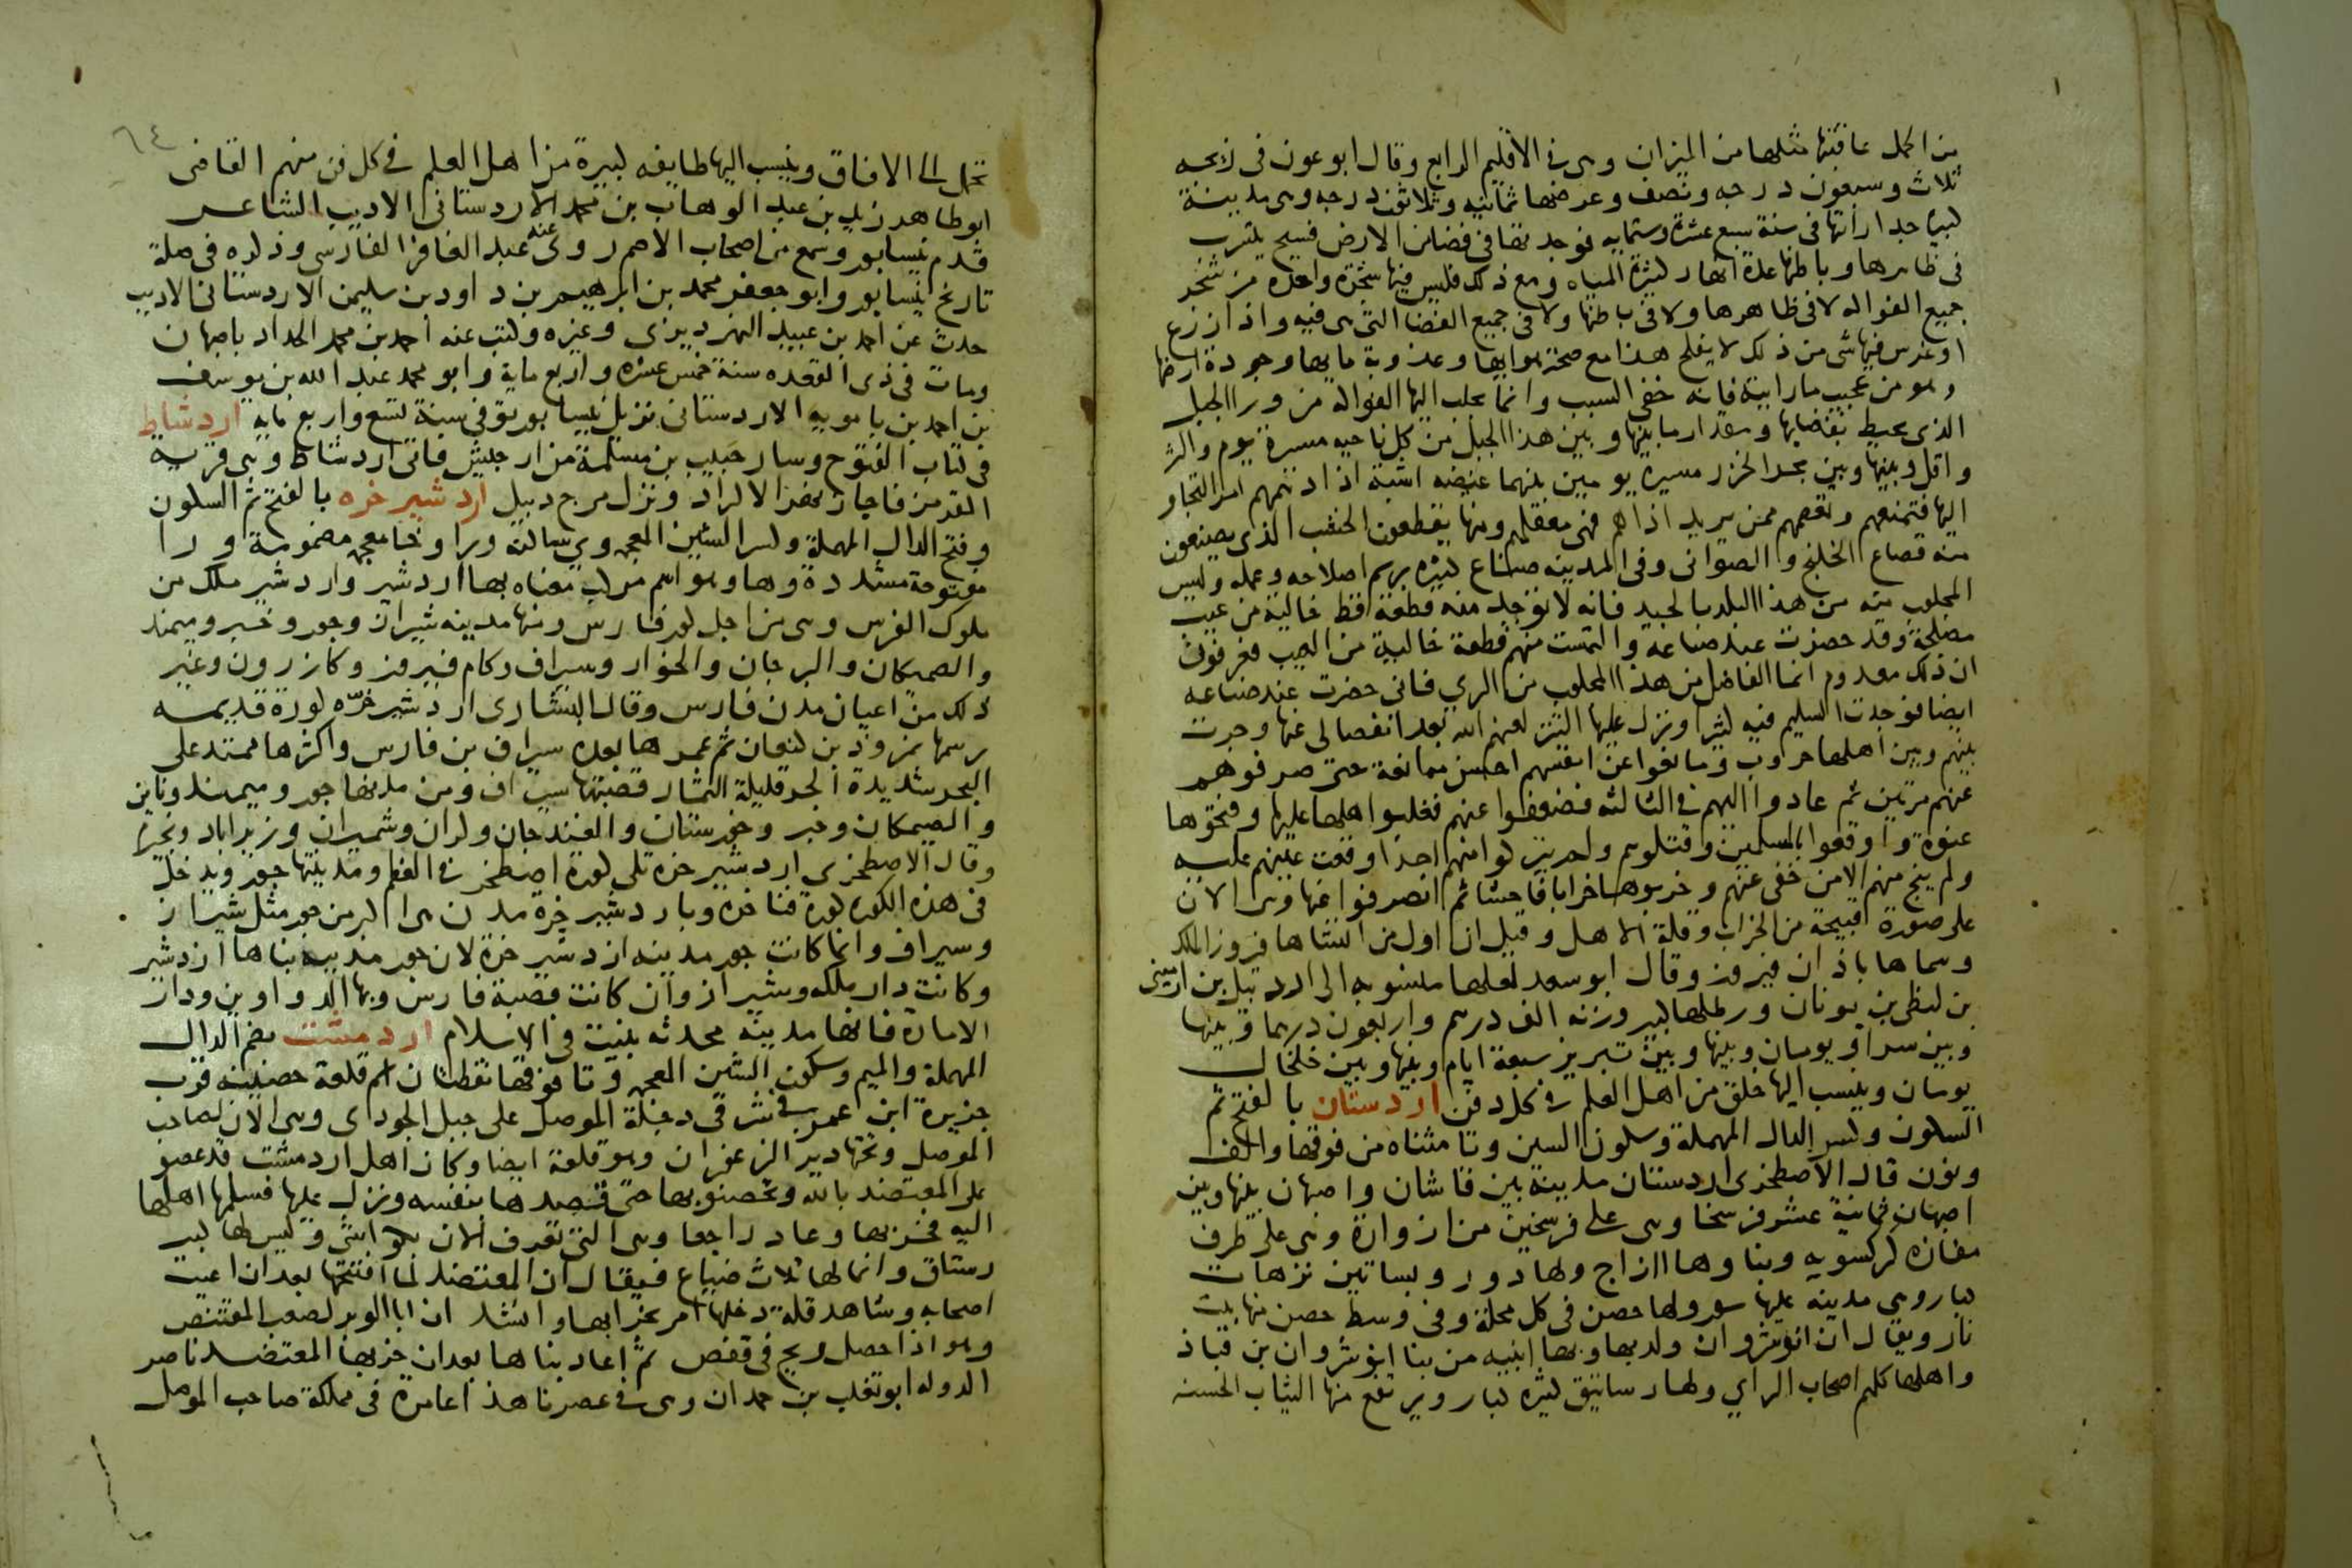 من الحمل عاقبتها مثلها من الميزان وهى فى الاقليم الرابع وقال ابو عون فى زيجه
ثلاث وسبعون درجه ونصف وعرضها ثمانيه وثلاثون درجه وهى مدينة
كبيره جدا رأتها فى سنة سبع عشرة وستمايه فوجدتها فى فضا من الارض فسيح يتسرب
فى ظاهرها وباطنها عدة انهار كثيرة المياه ومع ذلك فليس فيها شجرة واحده من شجر
جميع الفواكه لا فى ظاهرها ولا فى باطنها ولا فى جميع الفضا التى هى فيه واذا زرع
او غرس فيها شى من ذلك لا يفلح هذا مع صحة هوايها وعذوبة مايها وجودة ارضها
وهو من عجيب ما رايته فانه خفى السبب وانما يجلب اليها الفواكه من ورا الجبل
الذى يحيط بفضايها ومقدار ما بينها وبين هذا الجبل من كل ناحيه مسيرة يوم واكثر
واقل وبينها وبين بحر الخزر مسيره يومين بينهما غيضه اشبة اذا دهمهم امر التجاو
اليها فتمنعهم وتعصمهم ممن يريد اذاهم فهى معقلهم ومنها يقطعون الخشب الذى يصنعون
منه قصاع الخلنج والصوانى وفى المدينه صناع كثيره برسم اصلاحه وعمله وليس
المجلوب منه من هذا البلد بالجيد فانه لا توجد منه قطعة قط خالية من عيب
مصلحة وقد حضرت عند صناعه والتمست منهم قطعة خالية من العيب فعرفونى
ان ذلك معدوم انما الفاضل من هذا المجلوب من الري فانى حضرت عند صناعه
ايضا فوجدت السليم فيه كثيرا ونزل عليها التتر لعنهم الله بعد انفصالى عنها وجرت
بينهم وبين اهلها حروب ومانعوا عن انفسهم احسن ممانعة حتى صرفوهم
عنهم مرتين ثم عادوا اليهم فى الثالثه فضعفوا عنهم فغلبوا اهلها عليها وفتحوها
عنوة واوقعوا بالمسلمين وقتلوهم ولم يتركوا منهم احدا وقعت عينهم عليه
ولم ينج منهم الا من خفى عنهم وخربوها خرابا فاحشا ثم انصرفوا عنها وهى الان
على صورة قبيحة من الخراب وقلة الاهل وقيل ان اول من انشاها فيروز الملك
وسماها باذان فيروز وقال ابو سعد لعلها منسوبه الى اردبيل بن ارمينى
بن لنطى بن يونان ورطلها كبير وزنه الف درهم واربعون درهما وبينها
وبين سراو يومان وبينها وبين تبريز سبعة ايام وبينها وبين خلخال
يومان وينسب اليها خلق من اهل العلم فى كل فن اردستان بالفتح ثم
السكون وكسر الدال المهملة وسكون السين وتا مثناه من فوقها والف
ونون قال الاصطخرى اردستان مدينة بين قاشان واصبهان بينها وبين
اصبهان ثمانية عشر فرسخا وهى على فرسخين من ازوارة وهى على طرف
مفازه كركسويه وبناوها ازاج ولها دور وبساتين نزهات
كبار وهى مدينه عليها سور ولها حصن فى كل محلة وفى وسط حصن منها بيت
نار ويقال ان انوشروان ولد بها وبها ابنيه من بنا انوشروان بن قباذ
واهلها كلهم اصحاب الراي ولها رساتيق كثيره كبار ويرتفع منها الثياب الحسنه
٦٤
تحمل الى الافاق وينسب اليها طايفه كبيرة من اهل العلم فى كل فن منهم القاضى
ابو طاهر زيد بن عبد الوهاب بن محمد الاردستانى الاديب الشاعر
قدم نيسابور وسمع من اصحاب الاصم روى عنه عبد الغافر الفارسى وذكره فى صلة
تاريخ نيسابور وابو جعفر محمد بن ابرهيم بن داود بن سليمن الاردستانى الاديب
حدث عن احمد بن عبيد النهرديرى وغيره وكتب عنه احمد بن محمد الحداد باصبهان
ومات فى ذى القعده سنة خمس عشره واربع ماية وابو محمد عبد الله بن يوسف
بن احمد بن بامويه الاردستانى نزيل نيسابور توفى سنة تسع واربع مايه اردشاط
فى كتاب الفتوح وسار حبيب بن مسلمة من ارجيش فاتى اردشاط وهى قرية
القرمز فاجاز نهر الاكراد ونزل مرج دبيل اردشير خره بالفتح ثم السكون
وفتح الدال المهملة وكسر الشين المعجمه ويا ساكنه ورا وخا معجمه مضمومة ورا
مفتوحة مشددة وها وهو اسم مركب معناه بها اردشير واردشير ملك من
ملوك الفرس وهى من اجل كور فارس ومنها مدينه شيراز وجور وخبر وميمند
والصمكان والبرجان والخوار وسيراف وكام فيروز وكازرون وغير
ذلك من اعيان مدن فارس وقال البشارى اردشير خرّه كورة قديمه
رسمها نمروذ بن كنعان ثم عمرها بعده سيراف بن فارس واكثرها ممتد على
البحر شديدة الحر قليلة الثمار قصبتها سيراف ومن مدنها جور وميمند ونابن
والصيمكان وخبر وخورستان والغندجان وكران وشميران وزيراباد ونجيرم
وقال الاصطخرى اردشير خره تلى كورة اصطخر فى العظم ومدينتها جور ويدخل
فى هذه الكوره كورة فنا خره وباردشير خرة مدن هى اكبر من جور مثل شيراز
وسيراف وانما كانت جور مدينه اردشير خرة لان جور مدينه بناها اردشير
وكانت دار ملكه وشيراز وان كانت قصبة فارس وبها الدواوين ودار
الامارة فانها مدينه محدثه بنيت فى الاسلام اردمشت بضم الدال
المهملة والميم وسكون الشين المعجمه وتا فوقها نقطتان اسم قلعة حصينه قرب
جزيرة ابن عمر فى شرقى دجلة الموصل على جبل الجودى وهى الان لصاحب
الموصل وتحتها دير الزعفران وهو قلعة ايضا وكان اهل اردمشت قد عصو
على المعتضد بالله وتحصنو بها حتى قصدها بنفسه ونزل عليها فسلمها اهلها
اليه فخربها وعاد راجعا وهى التى تعرف الان بكواشى وليس لها كبير
رستاق وانما لها ثلاث ضياع فيقال ان المعتضد لما افتتحها بعد ان اعيت
اصحابه وشاهد قلة دخلها امر بخرابها وانشد ان ابا الوبر لصعب المقتنص
وهو اذا حصل ريح فى قفص ثم اعاد بناها بعد ان خربها المعتضد ناصر
الدوله ابو تغلب بن حمدان وهى فى عصرنا هذا عامرة فى مملكة صاحب الموصل